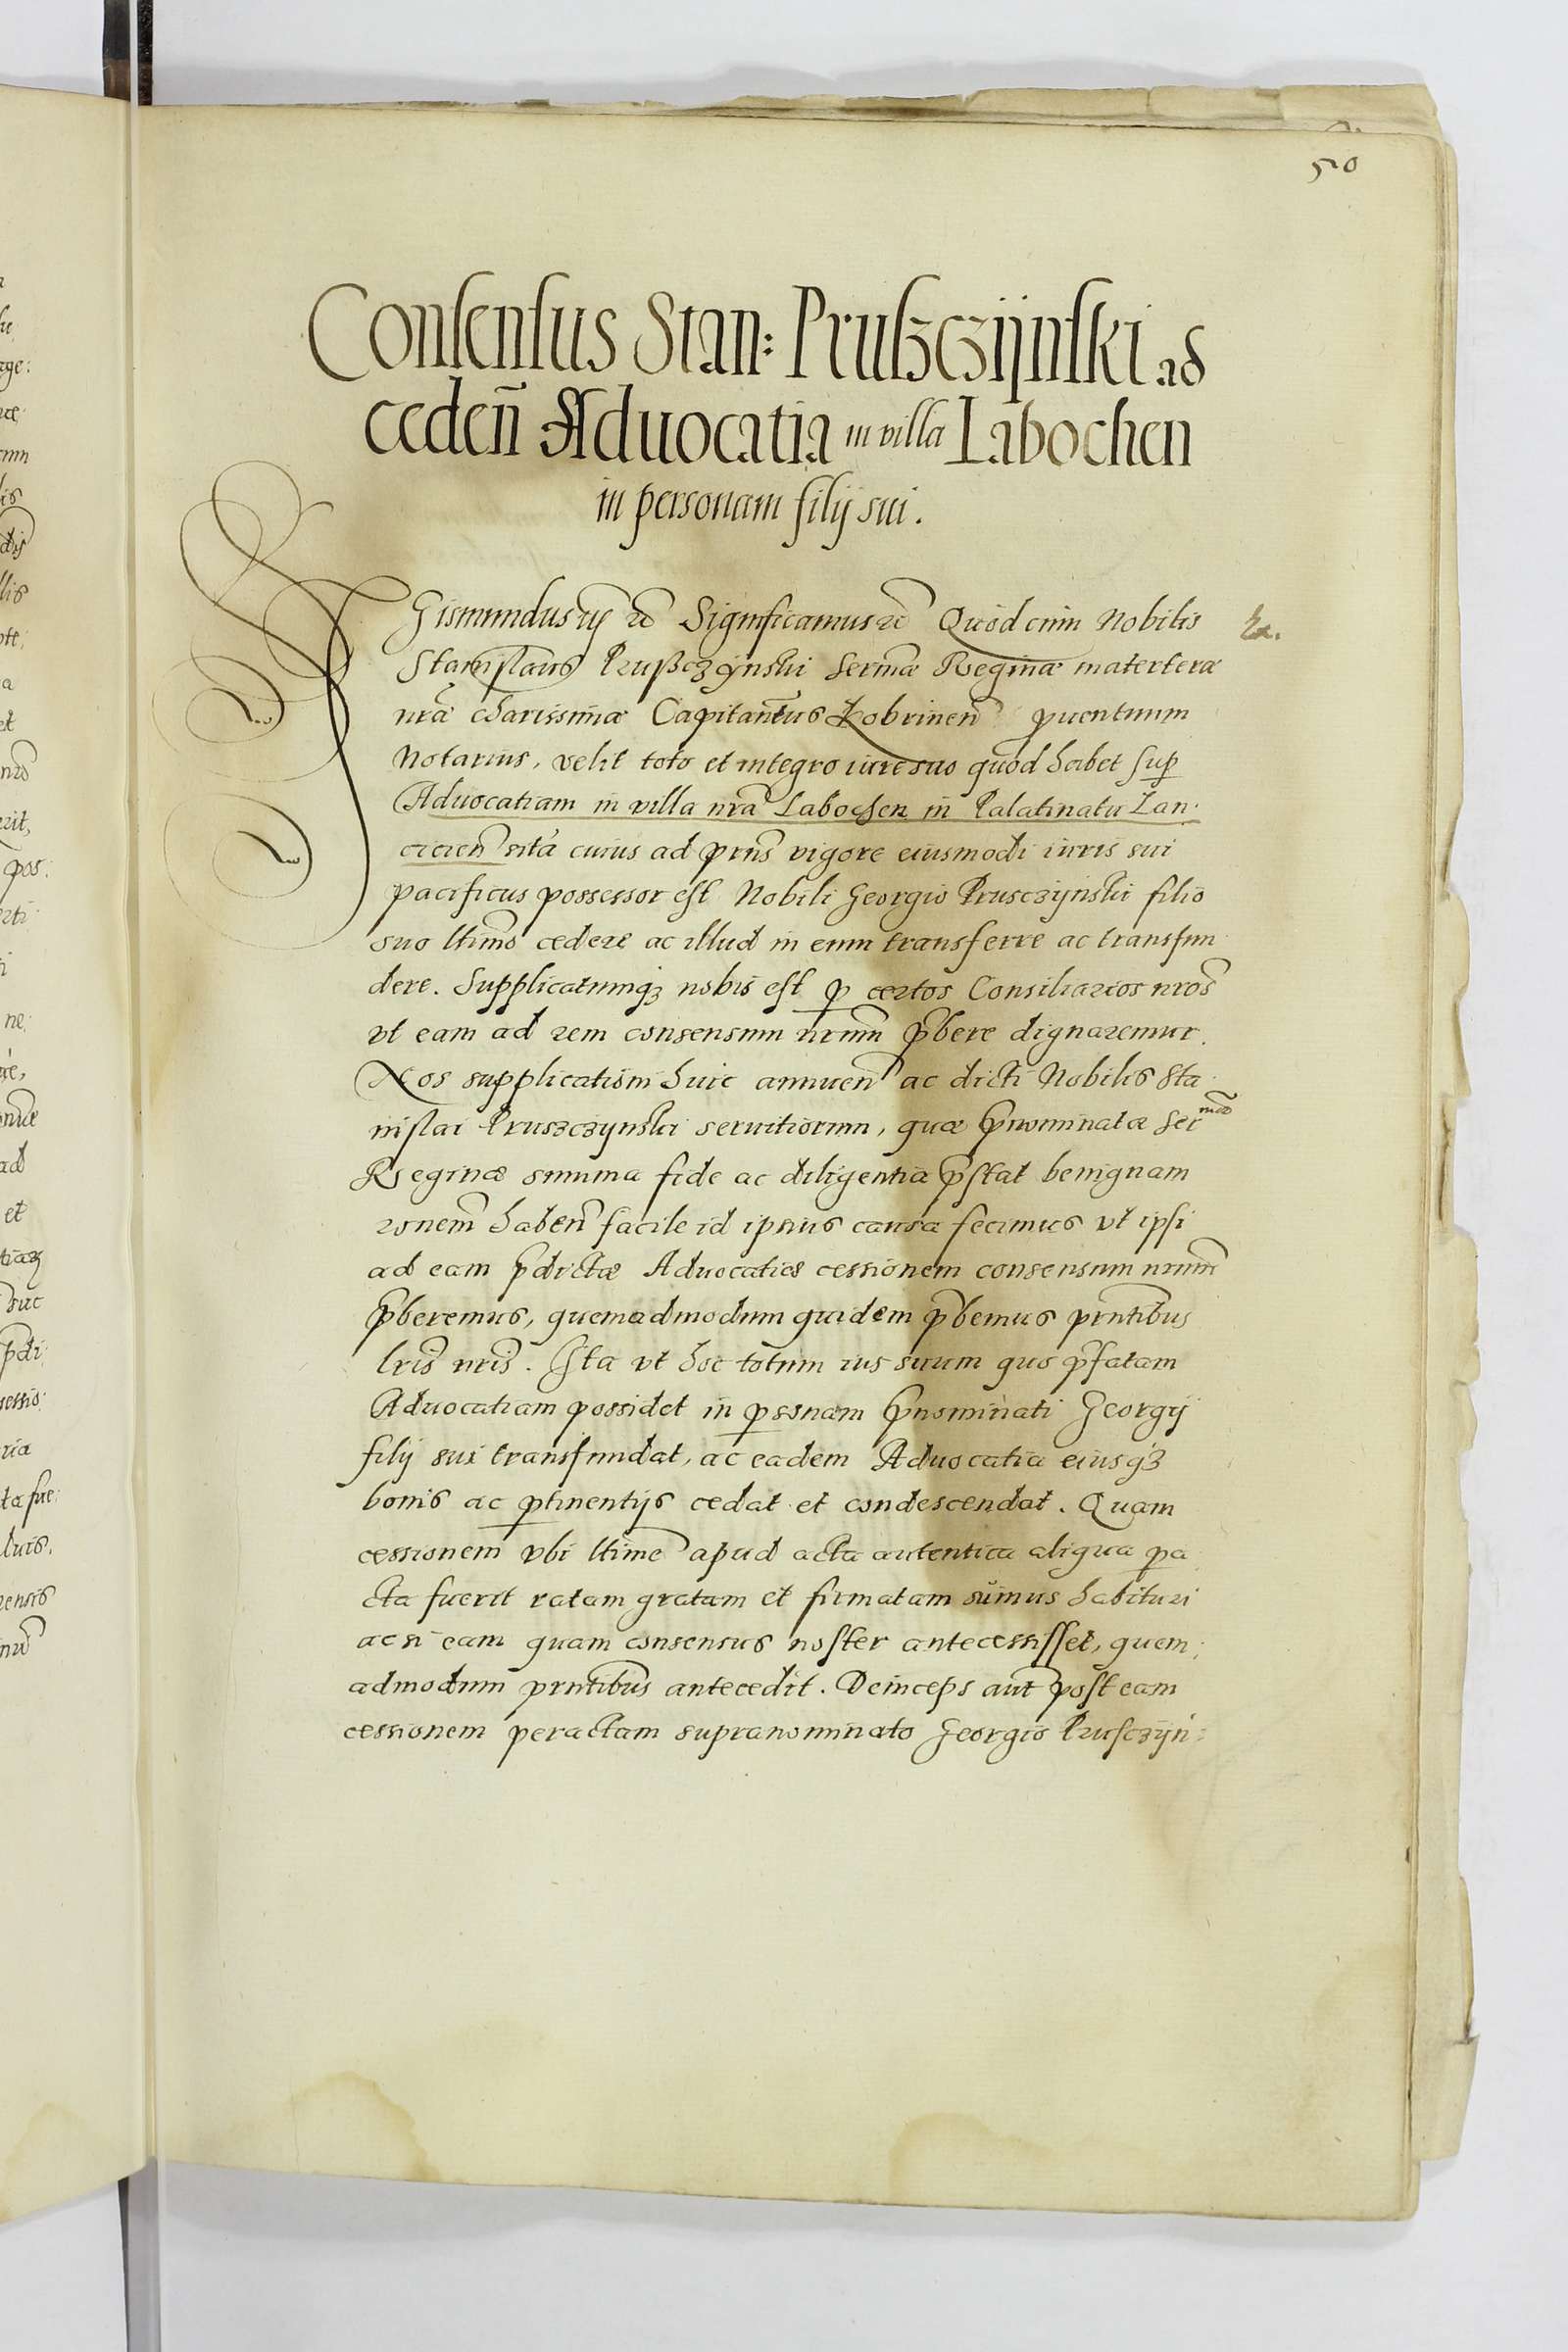 50
Consensus Stan: Prußczÿnski ad
ceden̄ Aduocatia in villa Labochen
in personam filij sui.
Sigismundus iij etc Significamus etc Quod cum Nobilis
Ex.
Stanislaus Prußczÿnski Sermæ Reginæ materteræ
nrā charissimæ Capitan̄tus Kobrinen̄ prouentuum
Notarius, velit toto et integro iure suo quod habet sup̱
Aduocatiam in villa nrā Labochen in Palatinatu Lan.
cicien̄ sita cuius ad prn̄s vigore eiusmodi iuris sui
pacificus possessor est Nobili Georgio Prusczÿnski filio
suo ltimo cedere ac illud in eum transferre ac transfun
dere. Supplicatumqꝫ nobis est ꝑ certos Consiliarios nros̄
vt eam ad rem consensum nrum̄ p̄bere dignaremur.
Nos supplicationi huic annuen̄ ac dicti Nobilis Sta
nislai Pruszczynski seruitiorum, quæ p̄nominatæ Serᵐᵃᵉ
Reginæ summa fide ac diligentia p̄stat benignam
ronem̄ haben̄ facile id ipsius causa fecimus vt ipsi
ad eam p̄dictæ Aduocatiæ cessionem consensum nrum̄
p̄beremus, quemadmodum quidem p̄bemus prn̄tibus
lris̄ nris̄. Ita vt hoc totum ius suum quo p̄fatam
Aduocatiam possidet in ꝑsonam p̄nominati Georgij
filij sui transfundat, ac eadem Aduocatia eiusqꝫ
bonis ac ꝑtinentijs cedat et condescendat. Quam
cessionem vbi ltime apud acta autentica aliqua ꝑa
cta fuerit ratam gratam et firmatam sumus habituri
ac si eam quam consensus noster antecessisset, quem,
admodum prn̄tibus antecedit. Deinceps aut̄ post eam
cessionem peractam supranominato Georgio Prusczÿn: